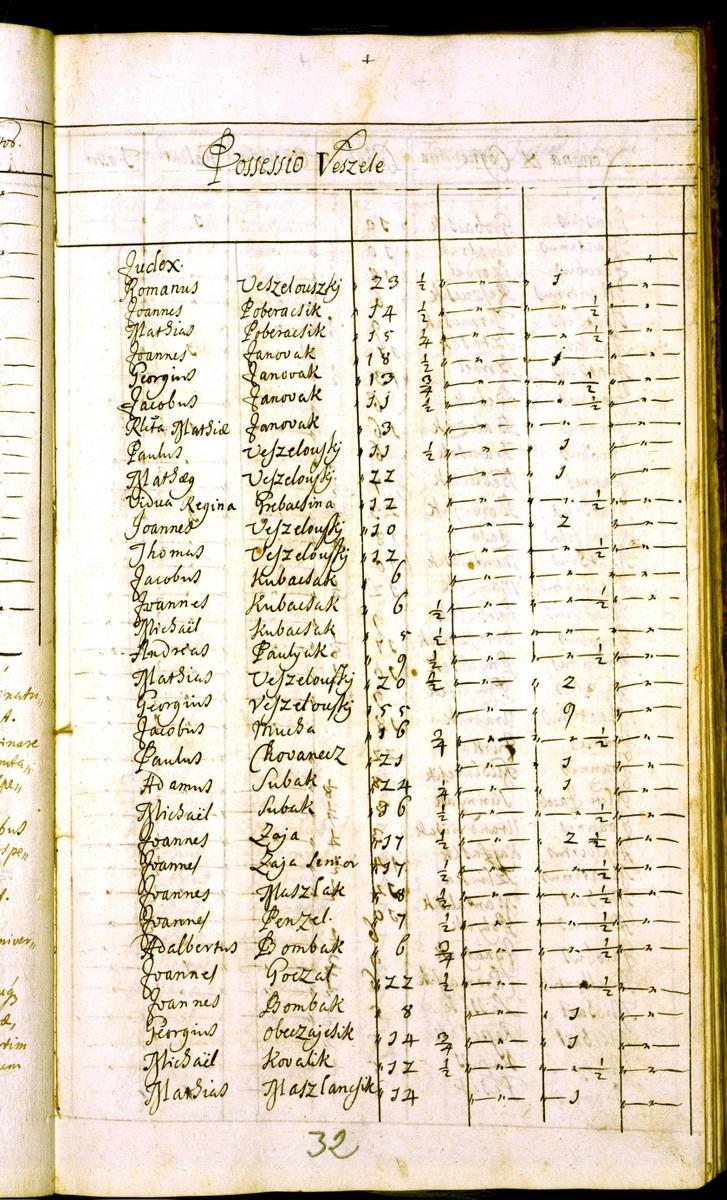 Possessio Veszele
Judex.
Romanus Veszelouszkj " 23 ½ " " " 1 " "
Joannes Poberacsik. " 14 ½ " " " " ½ " "
Mathias Poberacsik " 15 ¼ " " " " ½ " "
Joannes Janovak " 18 ½ " " " 1 " "
Georgius Janovak " 13 ¾ " " " " ½ " "
Jacobus Janovak " 11 ½ " " " " ½ " "
Rlta Mathiæ Janovak " 3 " " " " " "
Paulus Veszelouskj " 11 ½ " " " 1 " "
Mathæg Veszelouskj " 22 " " " 1 " "
Vidua Regina Prebacsina " 12 " " " " ½ " "
Joannes Veszelouskj " 10 " " " 2 " "
Thomas Veszelouskj " 12 " " " " ½ " "
Jacobus Kubacsak " 6 " " " " " "
Joannes Kubacsak " 6 ½ " " " " ½ " "
Michaël Kubacsak " 5 ½ " " " " " "
Andreas Paulyak " 9 ½ " " " " ½ " "
Mathias Veszelouskj " 20 ½ " " " 2 " "
Georgius Veszelouskj " 55 " " " 9 " "
Jacobus Mucha " 16 ¾ " " " " ½ " "
Paulus Chovanecz " 21 " " " 1 " "
Adamus Subak " 24 ¼ " " " 1 " "
Michaël Subak " 6 ½ " " " " " "
Joannes Zaja " 17 ½ " " " 2 ½ " "
Joannes Zaja Senior " 17 ½ " " " " ½ " "
Joannes Maszlak " 8 ½ " " " " ½ " "
Joannes Penzel. " 7 ½ " " " " ½ " "
Adalbertus Bombak " 6 ¾ " " " " ½ " "
Joannes Goczal " 22 ½ " " " " ½ " "
Joannes Bombak " 8 " " " 1 " "
Georgius Obeczajcsik " 14 ¾ " " " 1 " "
Michaël Kovalik " 12 ½ " " " " ½ " "
Mathias Maszlancsik " 14 " " " 1 " "
32